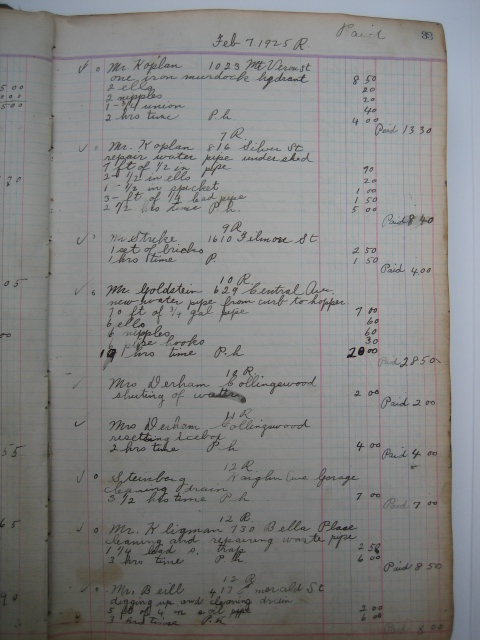 Paid 83
Feb 7. 1925 R.
Mr Koplan 1023 Mt Vernon st
one iron murdock hydrant 8 50
2 ells 20
2 nipples 20
1 - 3/4 union 40
2 hrs time P.h 4 00
Paid 13 30
7 R.
Mr. Koplan 816 Silver St
repair water pipe under shed
7 ft of 1/2 in pipe 70
2 - 1/2 in ells 20
1 - 1/2 in spicket 1 00
3 - ft of 3/4 lead pipe 1 50
2 1/2 hrs time P.h. 5 00
Paid 8 40
9 R.
Mr Strike 1610 Filmore St
1 set of bricks 2 50
1 hrs time P. 1 50
Paid 4 00
10 R.
Mr. Goldstein 629 Central Ave.
new water pipe from curb to hopper
70 ft of 3/4 gal pipe 7 00
6 ells 60
6 nipples 60
6 pipe hooks 30
hrs time P.h 20 00
Paid 28 50
Mrs Derham Collingswood
shuting of water 2 00
Paid 2 00
11 R.
Mrs Derham Collingswood
resetting icebox
2 hrs time P.h 4 00
Paid 4 00
12 R.
Steinberg Kaighn Ave Garage
cleaning drain
3 1/2 hrs time P.h 7 00
Paid 7 00
12 R.
Mr. Kligman 730 Bella Place
cleaning and repairing waste pipe
1 1/4 lead s. trap 2 50
3 hrs time P.h 6 00
Paid 8 50
12 R
Mrs. Beill 417 Emerald St
digging up and cleaning drain
5 ft of 4 in soil pipe 2 00
3 hrs time P.h 6 00
Paid 8 00